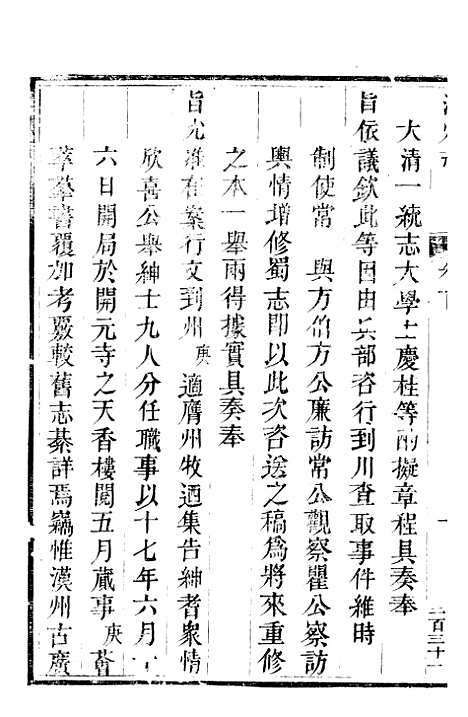 大清一統志大學士慶桂等酌擬章程具奏奉
旨依議欽此等因由兵部咨行到川查取事件維時
制使常　與方伯方公廉訪常公觀察瞿公察訪
輿情增修蜀志即以此次咨送之稿爲將來重修
之本一舉兩得據實具奏奉
旨允准在案行文到州庚適膺州牧迺集告紳耆衆情
欣喜公舉紳士九人分任職事以十七年六月十
六日開局於開元寺之天香樓閱五月蕆事庚薈
萃羣書覆加考覈較舊志綦詳焉竊惟漢州古廣
二百三十一